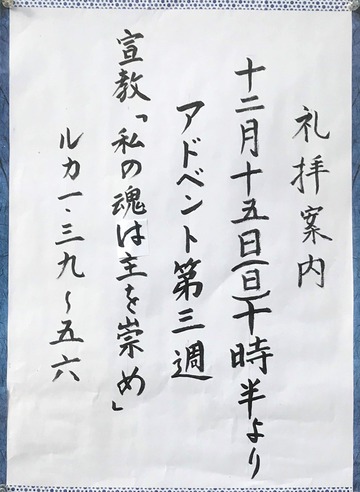 礼拝案内
十二月十五日(日)十時半より
アドベント第三週
宣教「私の魂は主を崇め」
ルカ一・三九～五六